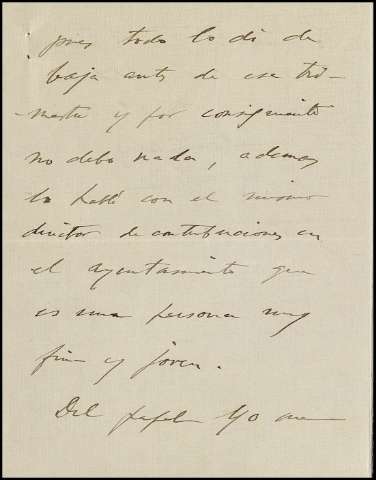 pues todo lo di de
baja antes de ese tri-
mestre y por consiguiente
no debo nada, ademas
lo hablé con el mismo
director de contribuciones en
el ayuntamiento que
es una persona muy
fina y joven.
Del papel yo me